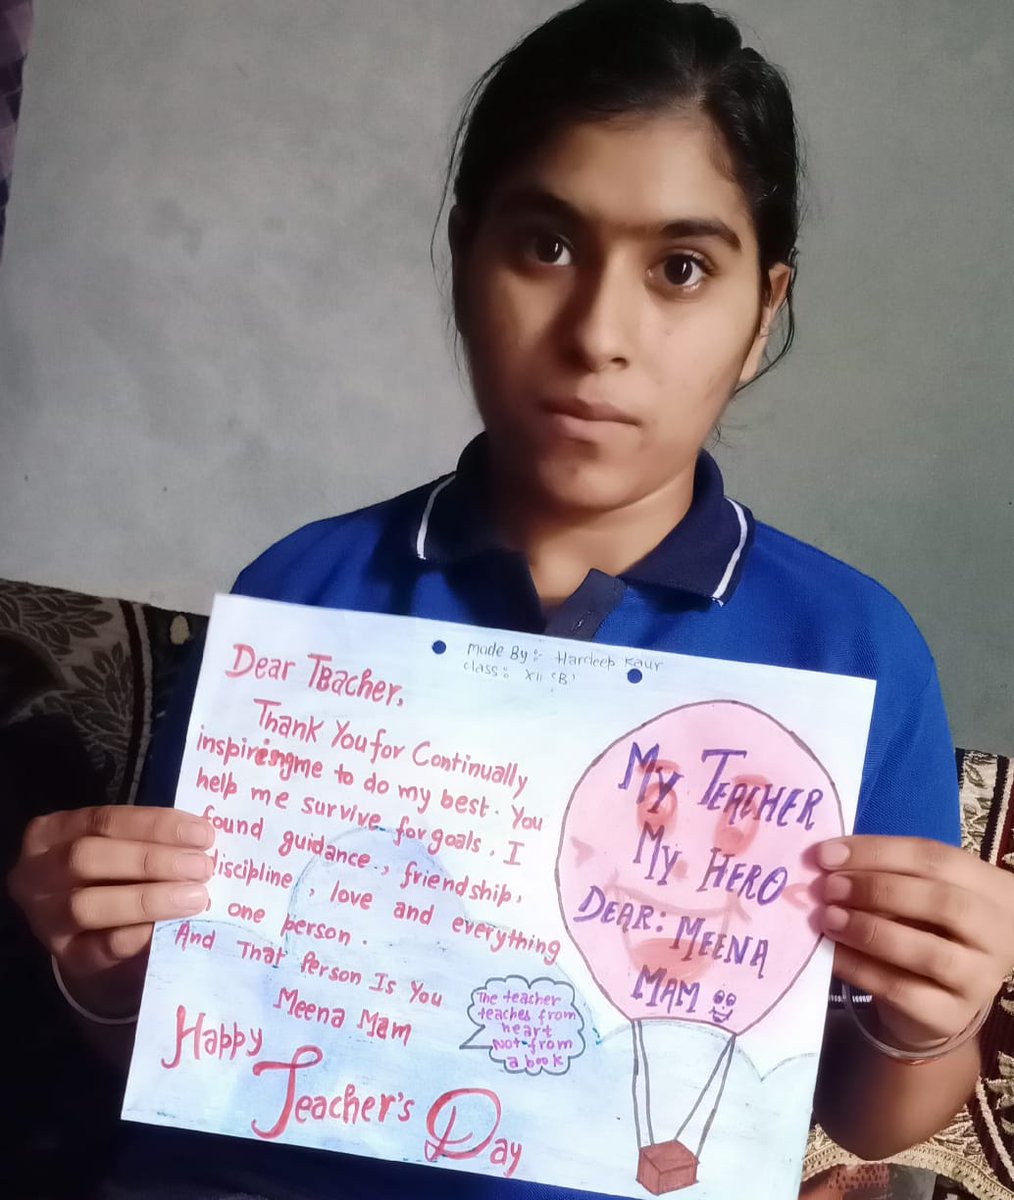 made By :- Hardeep Kaur
class :- XII 'B'
Dear Teacher,
Thank You for Continually
inspiring me to do my best. You
help me survive for goals. I
found guidance, friendship,
discipline, love and everything
one person.
And That Person Is You
Meena Mam
Happy
Teacher's Day
The teacher
teaches from
heart
Not from
a book
My TEACHER
My HERO
DEAR: MEENA
MAM